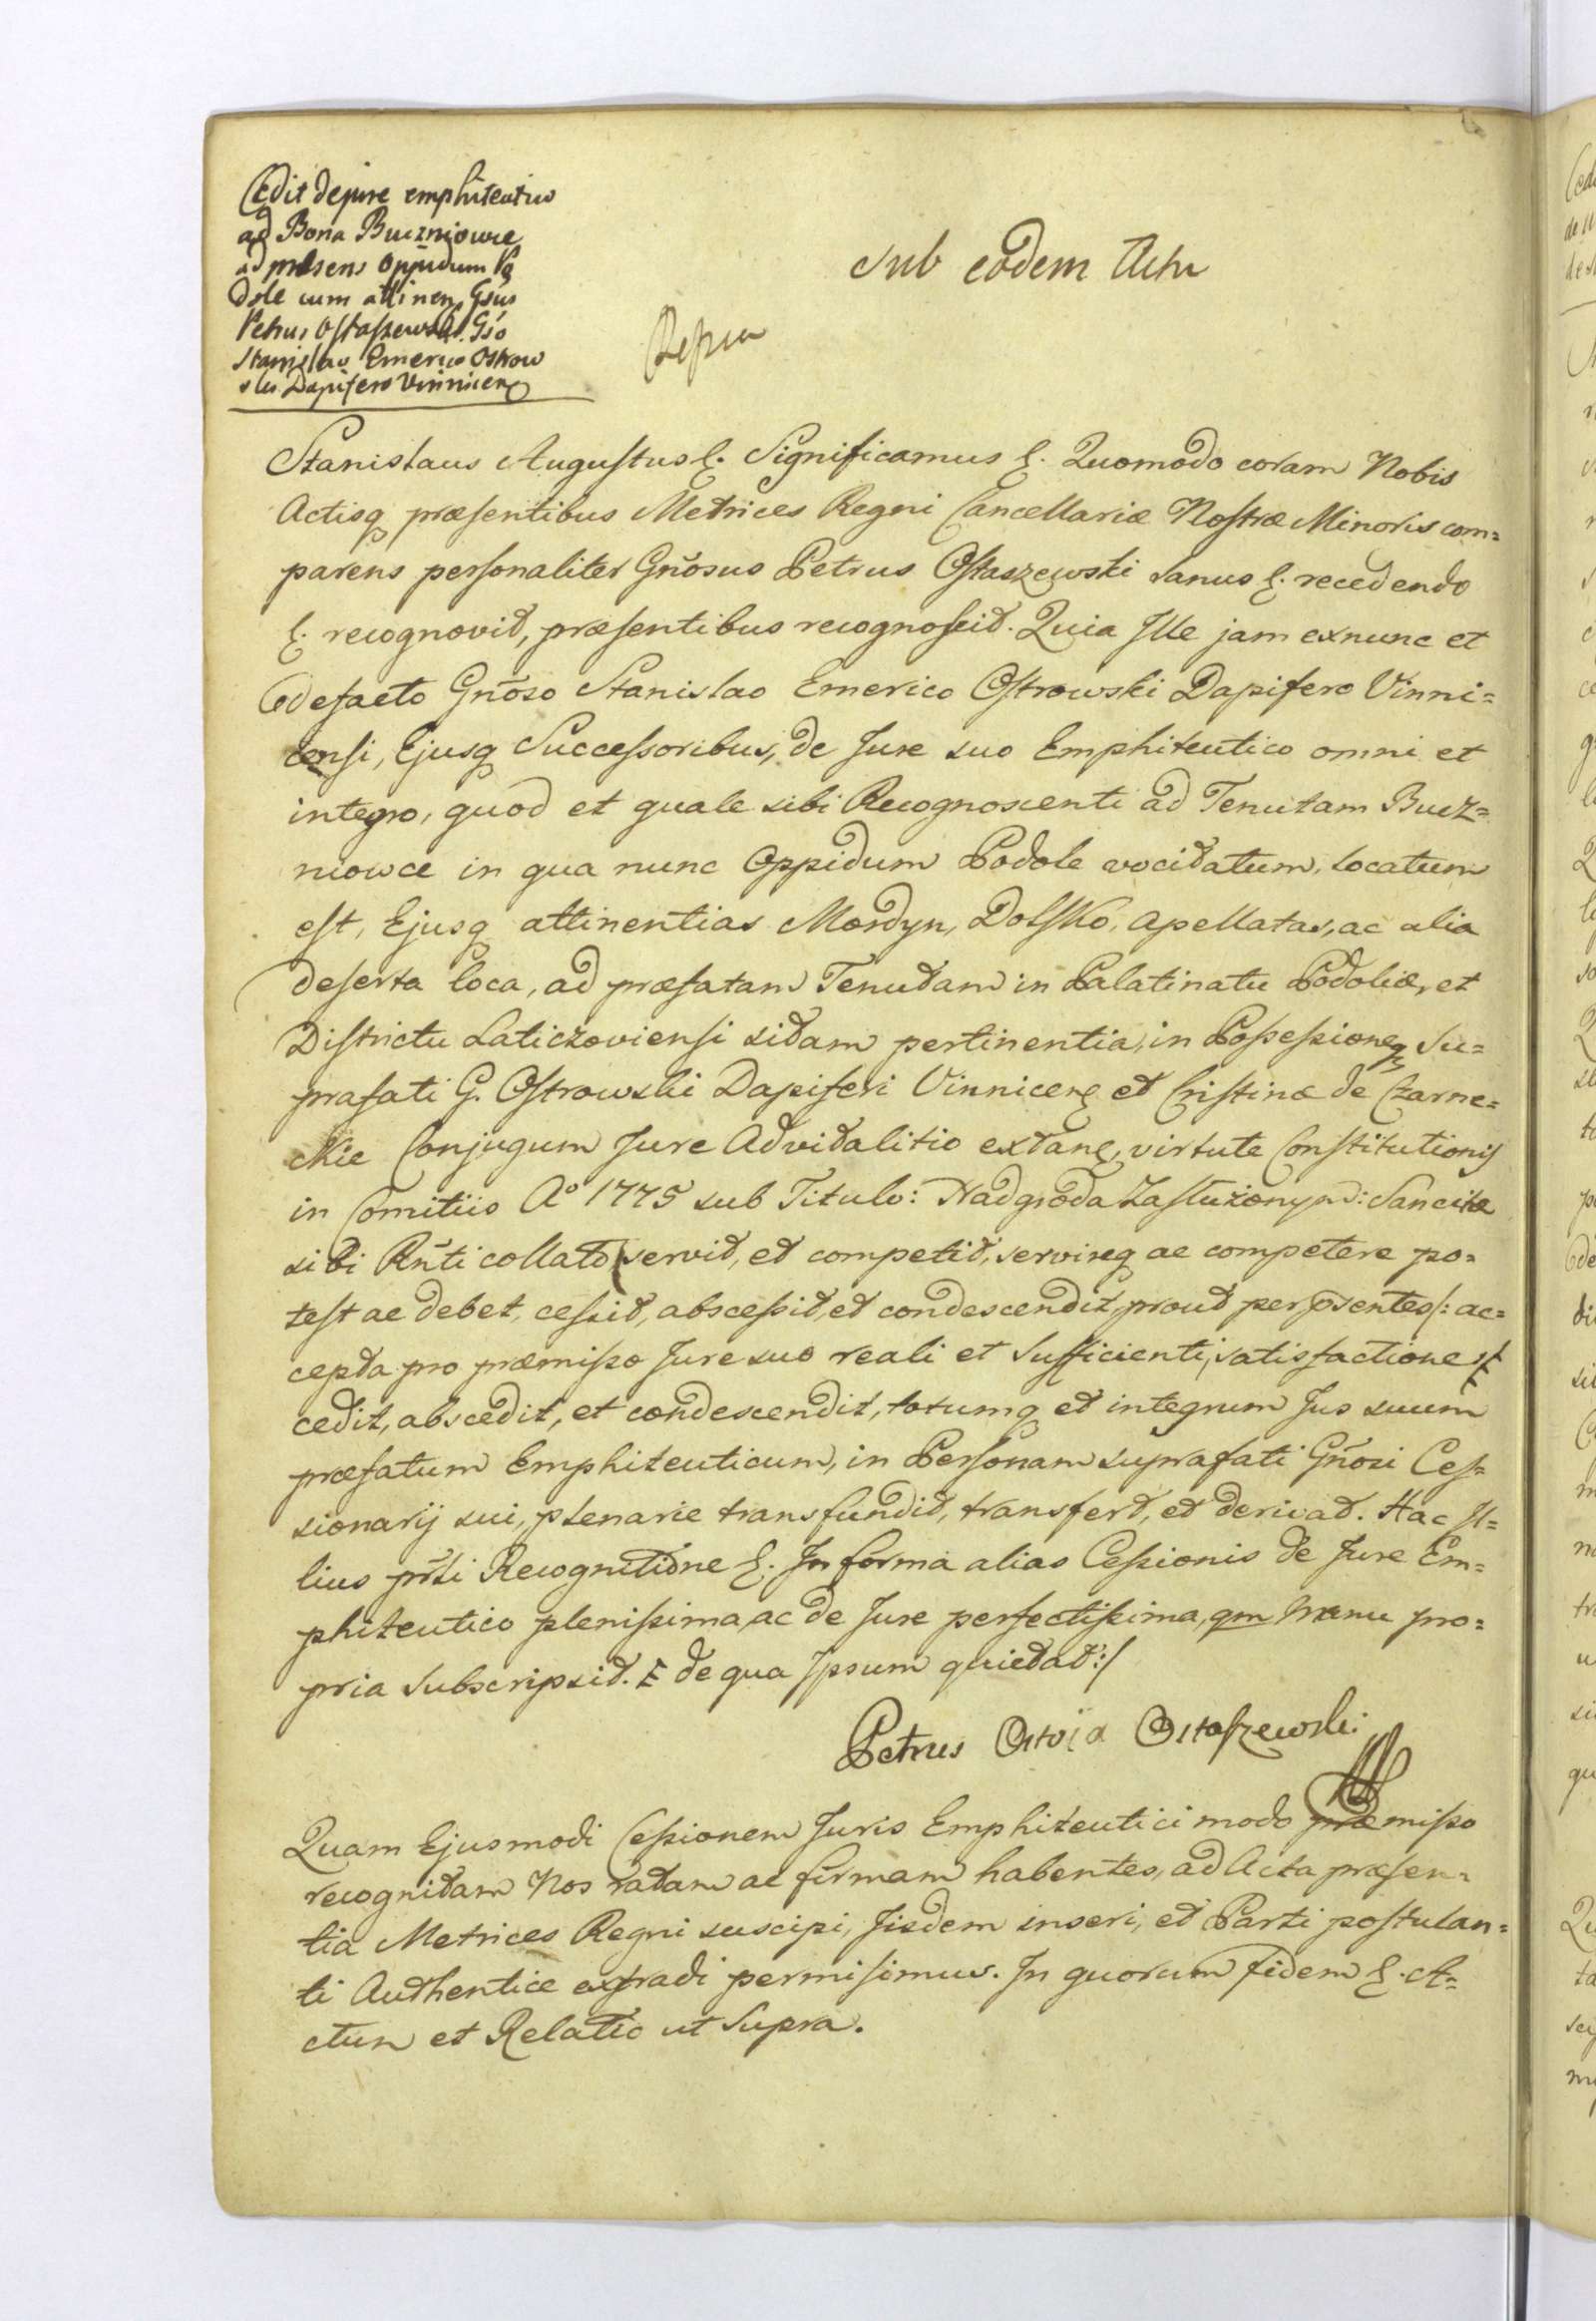 Cedit de jure emphiteutico
ad Bona Buczniowce
ad præsens Oppidum Po
dole cum attinen. Gsus
Petrus Ostaszewski Gso
Stanislao Emerico Ostrow
ski Dapifero Vinnicen
Sub eodem Actu
Stanislaus Augustus &. Significamus &. Quomodo coram Nobis
Actisq præsentibus Metrices Regni Cancellariæ Nostræ Minoris com=
parens personaliter Gnosus Petrus Ostaszewski sanus &. recedendo
&. recognovit, præsentibus recognoscit. Quia Ille jam exnunc et
defacto Gnoso Stanislao Emerico Ostrowski Dapifero Vinni=
censi, Ejusq Successoribus, de Jure suo Emphiteutico omni et
integro, quod et quale sibi Recognoscenti ad Tenutam Bucz=
niowce in qua nunc Oppidum Podole vocitatum, locatum
est, Ejusq attinentias Mordyn, Dolsko, apellatas, ac alia
deserta loca, ad præfatam Tenutam in Palatinatu Podoliæ, et
Districtu Laticzoviensi sitam pertinentia, in Possessioneq Su=
prafati G. Ostrowski Dapiferi Vinnicen et Cristinæ de Czarne=
ckie Conjugum Jure Advitalitio extan, virtute Constitutionis
in Comitiis Aº 1775 sub Titulo: Nadgroda Zasłużonym: Sancitæ
sibi Rnti collato servit, et competit, servireq ac competere po=
test ac debet, cessit, abscessit, et condescendit, prout per psentes /: ac=
cepta pro præmisso Jure suo reali et sufficienti, satisfactione
cedit, abscedit, et condescendit, totumq et integrum Jus suum
præfatum Emphiteuticum, in Personam suprafati Gnosi Ces=
sionarij sui, plenarie transfundit, transfert, et derivat. Hac Il=
lius pnti Recognitione &. In forma alias Cessionis de Jure Em=
phiteutico plenissima, ac de Jure perfectissima, qm Manu pro=
pria Subscripsit. de qua Ipsum quietat :/
Petrus Ostoja Ostaszewski
Quam Ejusmodi Cessionem Juris Emphiteutici modo præmisso
recognitam Nos ratam ac firmam habentes, ad Acta præsen=
tia Metrices Regni suscipi, Iisdem inseri, et Parti postulan=
ti Authentice extradi permisimus. In quorum fidem &. A=
ctum et Relatio ut Supra.